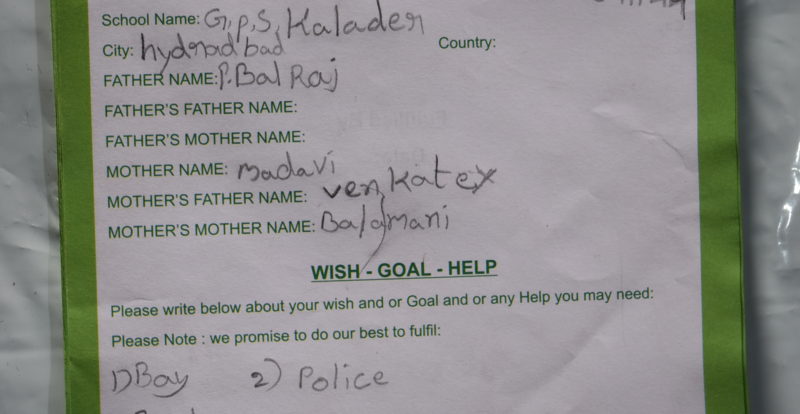 School Name: G,P,S, Kalader
City: hyderbad bad Country:
FATHER NAME: P.Bal Raj
FATHER'S FATHER NAME:
FATHER'S MOTHER NAME:
MOTHER NAME: madavi
MOTHER'S FATHER NAME: venkatex
MOTHER'S MOTHER NAME: Balamani
WISH - GOAL - HELP
Please write below about your wish and or Goal and or any Help you may need:
Please Note : we promise to do our best to fulfil:
1) Bay 2) Police